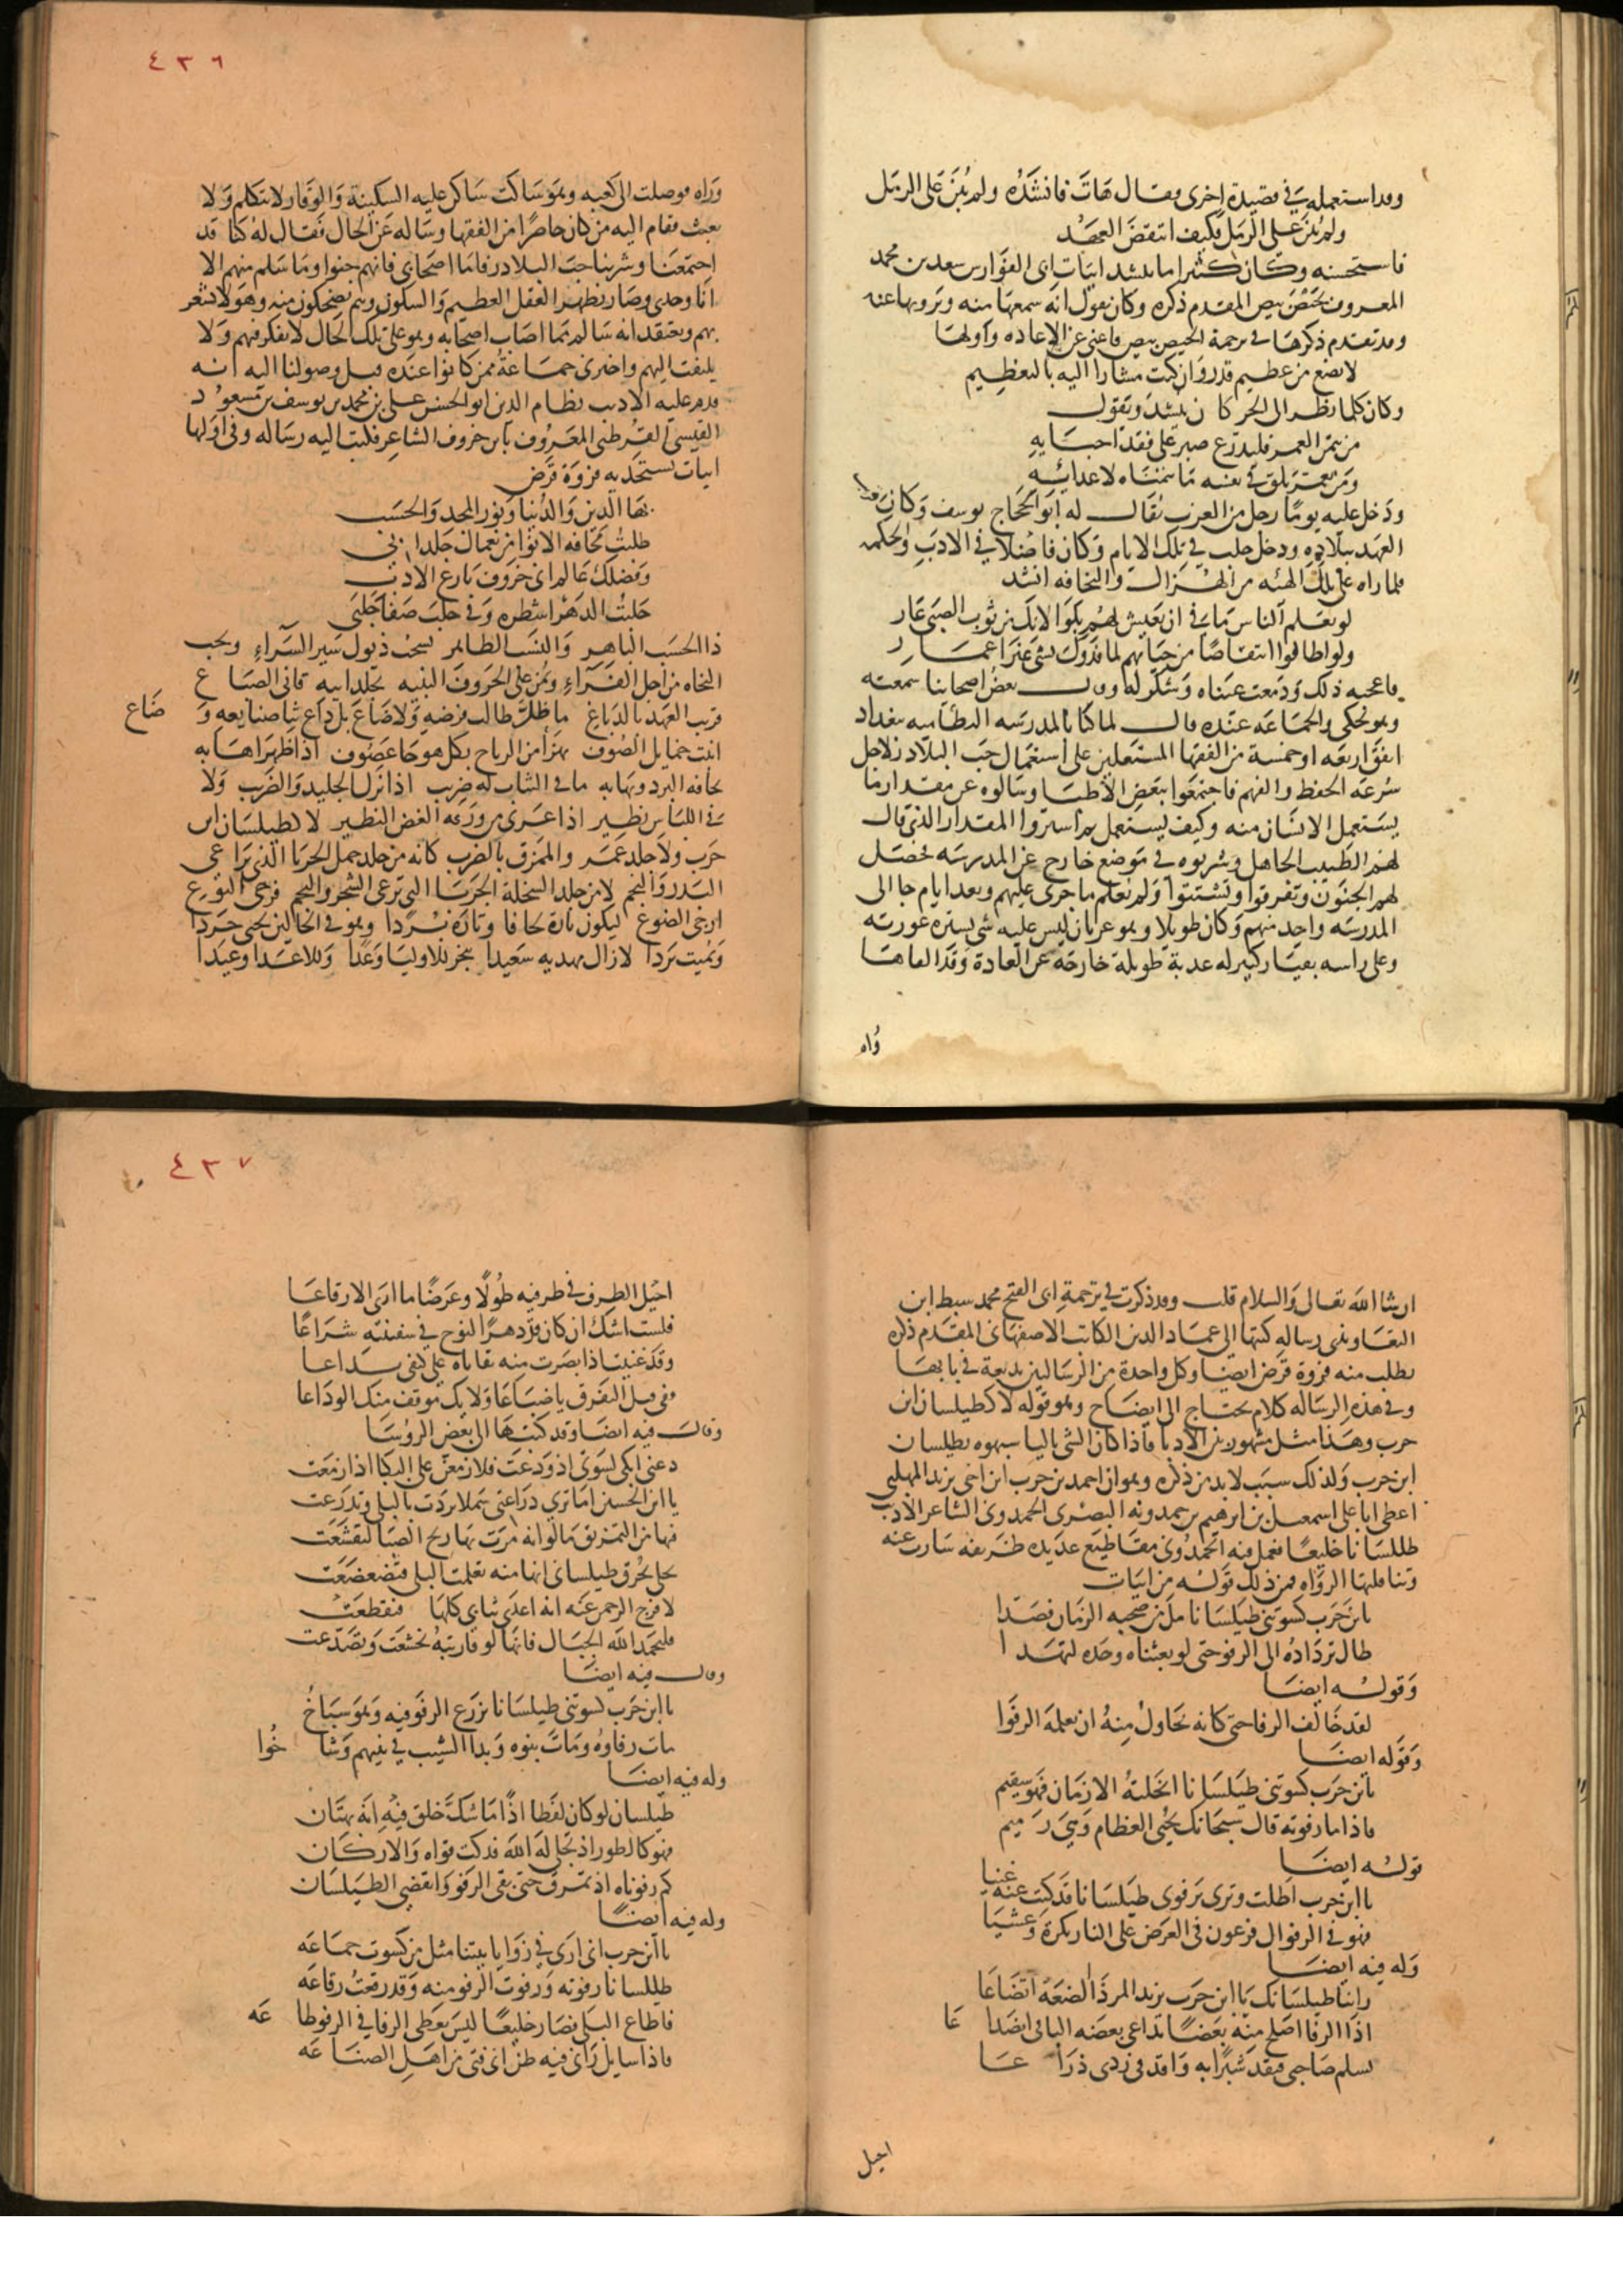 وقد استعمله في قصيدة اخرى فقال هات فانشده ولم يبن على الرمل
ولم يبن على الرمل فكيف انتقض العهد
فاستحسنه وكان كثيرا ما ينشد ابيات ابى الفوارس سعد بن محمد
المعروف بحيص بيص المقدم ذكره وكان يقول انه سمعها منه ويرويها عنه
وقد تقدم ذكرها في ترجمة الحيص بيص فاغنى عن الاعاده واولها
لا تضع من عظيم قدر وان كنت مشارا اليه بالتعظيم
وكان كلما نظر الى الجر كان ينشد ويقول
من يتمن العمر فليدرع صبرا على فقد احبابه
ومن يعمر يلق في نفسه ما يتمناه لاعدائه
ودخل عليه يوما رجل من العرب يقال له ابو الحجاج يوسف وكان قريب
العهد ببلاده ودخل حلب في تلك الايام وكان فاضلا في الادب والحكمه
فلما راه على تلك الهئه من الهزال والنحافه انشد
لو يعلم الناس ما في ان تعيش لهم بكوا لانك من ثوب الصبى عار
ولو اطاقوا انتقاصا من حياتهم لما فدوك بشي غير اعمار
فاعجبه ذلك ودمعت عيناه وشكر له وقال بعض اصحابنا سمعته
وهو يحكي والجماعه عنده قال لما كنا بالمدرسه النظاميه ببغداد
اتفق اربعه او خمسة من الفقها المشتغلين على استعمال حب البلادر لاجل
سرعه الحفظ والفهم فاجتمعوا ببعض الاطبا وسالوه عن مقدار ما
يستعمل الانسان منه وكيف يستعمل ثم اشتروا المقدار الذي قال
لهم الطبيب الجاهل وشربوه في موضع خارج عن المدرسه فحصل
لهم الجنون وتفرقوا وتشتتوا ولم يعلم ما جرى عليهم وبعد ايام جا الى
المدرسه واحد منهم وكان طويلا وهو عريان ليس عليه شي يستر عورته
وعلى راسه بقيار كبير له عدبة طويلة خارجه عن العادة وقد القاها
وراه
٤٣٦
وراه فوصلت الى كعبه وهو ساكت ساكن عليه السكينة والوقار لا يتكلم ولا
يعبث فقام اليه من كان حاضرا من الفقها وساله عن الحال فقال له كنا قد
اجتمعنا وشربنا حب البلادر فاما اصحابي فانهم جنوا وما سلم منهم الا
انا وحدي وصار يظهر العقل العظيم والسكون وهم يضحكون منه وهو لا يشعر
بهم ويعتقد انه سالم مما اصاب اصحابه وهو على تلك الحال لا يفكر فيهم ولا
يلتفت اليهم واخبرني جماعة ممن كانوا عنده قبل وصولنا اليه انه
قدم عليه الاديب نظام الدين ابو الحسن على بن محمد بن يوسف بن مسعود
القيسي القرطبي المعروف بابن خروف الشاعر فكتب اليه رساله وفي اولها
ابيات يستجديه فروة قرض
بها الدين والدنيا ونور المجد والحسب
طلبت مخافه الانوا من نعماك جلد ابي
وفضلك عالم اني خروف بارع الادب
حلبت الدهر اشطره وفي حلب صفا حلبي
ذا الحسب الباهر والنسب الطاهر يسحب ذيول سير السراء ويحب
النحاه من اجل الفراء ويمن على الخروف النبيه بجلد ابيه قاني الصباغ
قريب العهد بالدباغ ما ظل طالب قرضه ولا ضاع بل ذاع ثنا صنايعه وضاع
اثيث خمايل الصوف يهزا من الرياح بكل هوجا عصوف اذا ظهر اهابه
يخافه البرد ويهابه ما في الثياب له ضريب اذا نزل الجليد والضريب ولا
في اللباس نظير اذا عرى من ورقه الغض النضير لا كطيلسان ابن
حرب ولا جلد عمرو الممزق بالضرب كانه من جلد حمل الحربا الذي يراعي
البدر والنجم لا من جلد السخلة الجربا التي ترعى الشجر والنجم فرجي النوع
ارجي الضوع ليكون تارة لحافا وتاره بردا وهو في الحالين يحيي حردا
ويميت بردا لا زال مهديه سعيدا ينجز للاوليا وعدا وللاعدا وعيدا
ان شا الله تعالى والسلام قلت وقد ذكرت في ترجمة ابى الفتح محمد سبط ابن
التعاويذي رساله كتبها الى عماد الدين الكاتب الاصفهاني المقدم ذكره
يطلب منه فروة قرض ايضا وكل واحدة من الرسالتين بديعة في بابها
وفي هذه الرساله كلام يحتاج الى ايضاح وهو قوله لا كطيلسان ابن
حرب وهذا مثل مشهور بين الادبا فاذا كان الشي باليا شبهوه بطيلسان
ابن حرب ولذلك سبب لا بد من ذكره وهو ان احمد بن حرب ابن اخي يزيد المهلبي
اعطى ابا على اسمعيل بن ابرهيم بن حمدويه البصرى الحمدوي الشاعر الاديب
طيلسانا خليعا فعمل فيه الحمدوي مقاطيع عديده ظريفه سارت عنه
وتناقلتها الرواه فمن ذلك قوله من ابيات
يابن حرب كسوتني طيلسانا مل من صحبه الزمان فصدا
طال ترداده الى الرفو حتى لو بعثناه وحده لتهدا
وقوله ايضا
لقد خالف الرفا حتى كانه يحاول منه ان يعلمه الرفوا
وقوله ايضا
يابن حرب كسوتني طيلسانا انحلته الازمان فهو سقيم
فاذا ما رفوته قال سبحانك يحيي العظام وهي رميم
قوله ايضا
يا ابن حرب اطلت وترى برفوى طيلسانا قد كنت عنه غنيا
فهو في الرفو ال فرعون في العرض على النار بكرة وعشيا
وله فيه ايضا
راينا طيلسانك يا ابن حرب يزيد المر ذا الضعة اتضاعا
اذا الرفا اصلح منه بعضا تداعى بعضه الباقي انصداعا
يسلم صاحبي فيقد شبرا به واقد في ردي ذراعا
احيل
٤٣٧
احيل الطرف في طرفيه طولا وعرضا ما ارى الا رقاعا
فلست اشك ان كان قد دهرا لنوح في سفينته شراعا
وقد غنيت اذ ابصرت منه بقاياه على كتفي تداعا
قفي قبل التفرق يا ضباعا ولا يك موقف منك الوداعا
وقال فيه ايضا وقد كتبها الى بعض الروسا
دعني ابكي كسوتي اذ ودعت فلازمعن على البكا اذ ازمعت
يا ابن الحسين اما ترى دراعتي سملا بردت بالبلى وتدرعت
فيها من التمزيق ما لو انه مرت بها ريح الصبا لتقشعت
يحكي تخرق طيلساني انها منه تعلمت البلى فتضعضعت
لا فرج الرحمن عنه انه اعدى ثيابي كلها فتقطعت
فليحمد الله الجبال فانها لو قاربته تخشعت وتصدعت
وقال فيه ايضا
يا ابن حرب كسوتني طيلسانا يزرع الرفو فيه وهو سباخ
مات رفاوه ومات بنوه وبدا الشيب في بنيهم وشاخوا
وله فيه ايضا
طيلسان لو كان لفظا اذا ما شك خلق فيه انه بهتان
فهو كالطور اذ تجلى له الله فدكت قواه والاركان
كم رفوناه اذ تمزق حتى بقي الرفو وانقضى الطيلسان
وله فيه ايضا
يا ابن حرب اني ارى في زوايا بيتنا مثل من كسوت جماعه
طيلسانا رفوته ورفوت الرفو منه وقد رقعت رقاعه
فاطاع البلى فصار خليعا ليس يعطى الرفا في الرفو طاعه
فاذا سايل راني فيه ظن اني فتى من اهل الصناعه